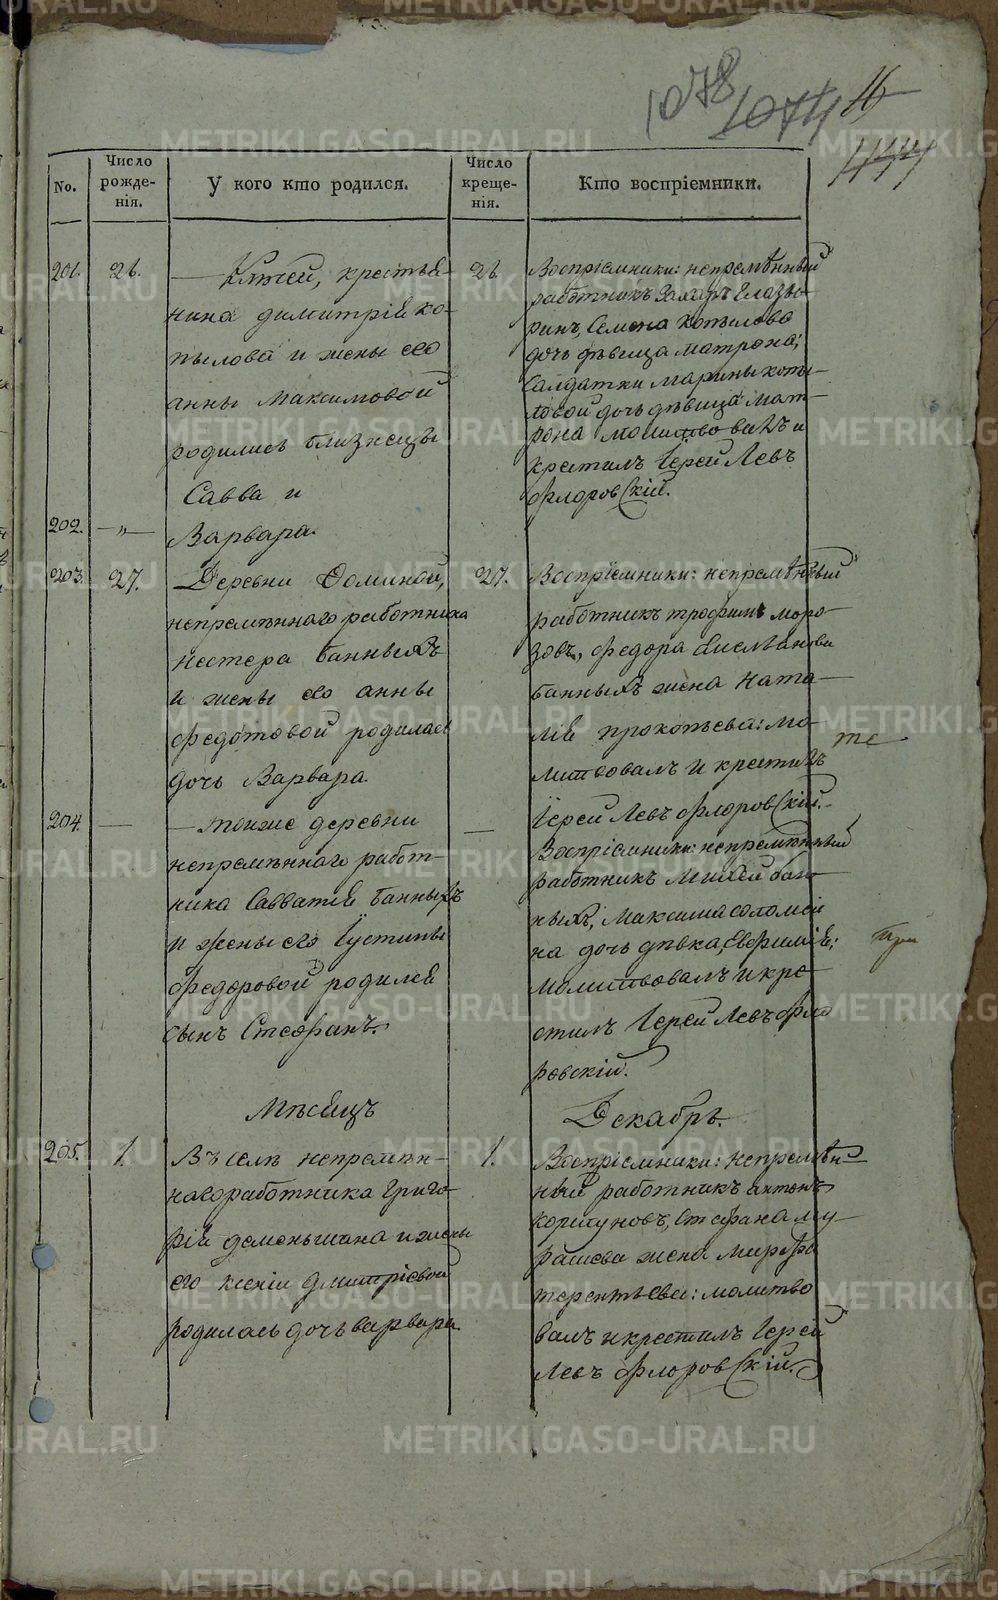 1078
1074
16
No.
Число рожде-нія.
У кого кто родился.
Число креще-нія.
Кто воспріемники.
201. 26.
крестья-
нина димитрія ко-
пылова и жены его
анны Максимовой
родились близнецы
Савва и
202. — „ —
Варвара.
26.
Воспріемники: непремѣнный
работникъ Захаръ Глазы-
ринъ, Семена Копылова
дочь дѣвица матрона;
Салдатки марины копы-
ловой дочь дѣвица Мат-
рона молитвовалъ и
крестилъ Іерей Левъ
Флоровскій.
203. 27.
Деревни Фоминой,
непремѣннаго работника
нестера банныхъ
и жены его анны
федотовой родилась
дочь Варвара.
27.
Воспріемники: непремѣнный
работникъ трофимъ моро-
зовъ, федора Емельянова
банныхъ жена ната-
лія прокопьева: мо-
литвовалъ и крестилъ
Іерей Левъ Флоровскій.
204. —
— тойже деревни
непремѣннаго работ-
ника Савватія банныхъ
и жены его Іустины
федоровой родился
сынъ Стефанъ.
—
Воспріемники: непремѣнный
работникъ Михей бан-
ныхъ, Максима
на дочь дѣвка, Евфимія;
молитвовалъ и кре-
стилъ Іерей Левъ Фло
ровскій.
Мѣсяцъ
Декабрь.
205. 1.
Въ селѣ непремѣн-
наго работника Григо-
рія деменьшина и жены
его ксеніи дмитріевой
родилась дочь варвара.
1.
Воспріемники: непремѣн-
ный работникъ антонъ
коршуновъ, Стефана му-
рашева жена Марфа
терентьева: молитво
валъ и крестилъ Іерей
Левъ Флоровскій.
METRIKI.GASO-URAL.RU